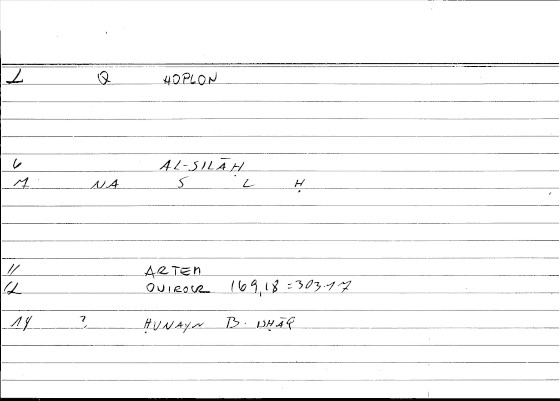 1 Q HOPLON
6 AL-SILĀḤ
7 NA S L Ḥ
11 ARTEM
12 OUIROUR 169,18 = 303.17
14 ? ḤUNAYN B. ISḤĀQ